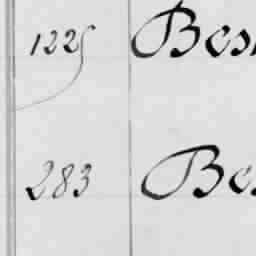 1225 Bes
283 Be